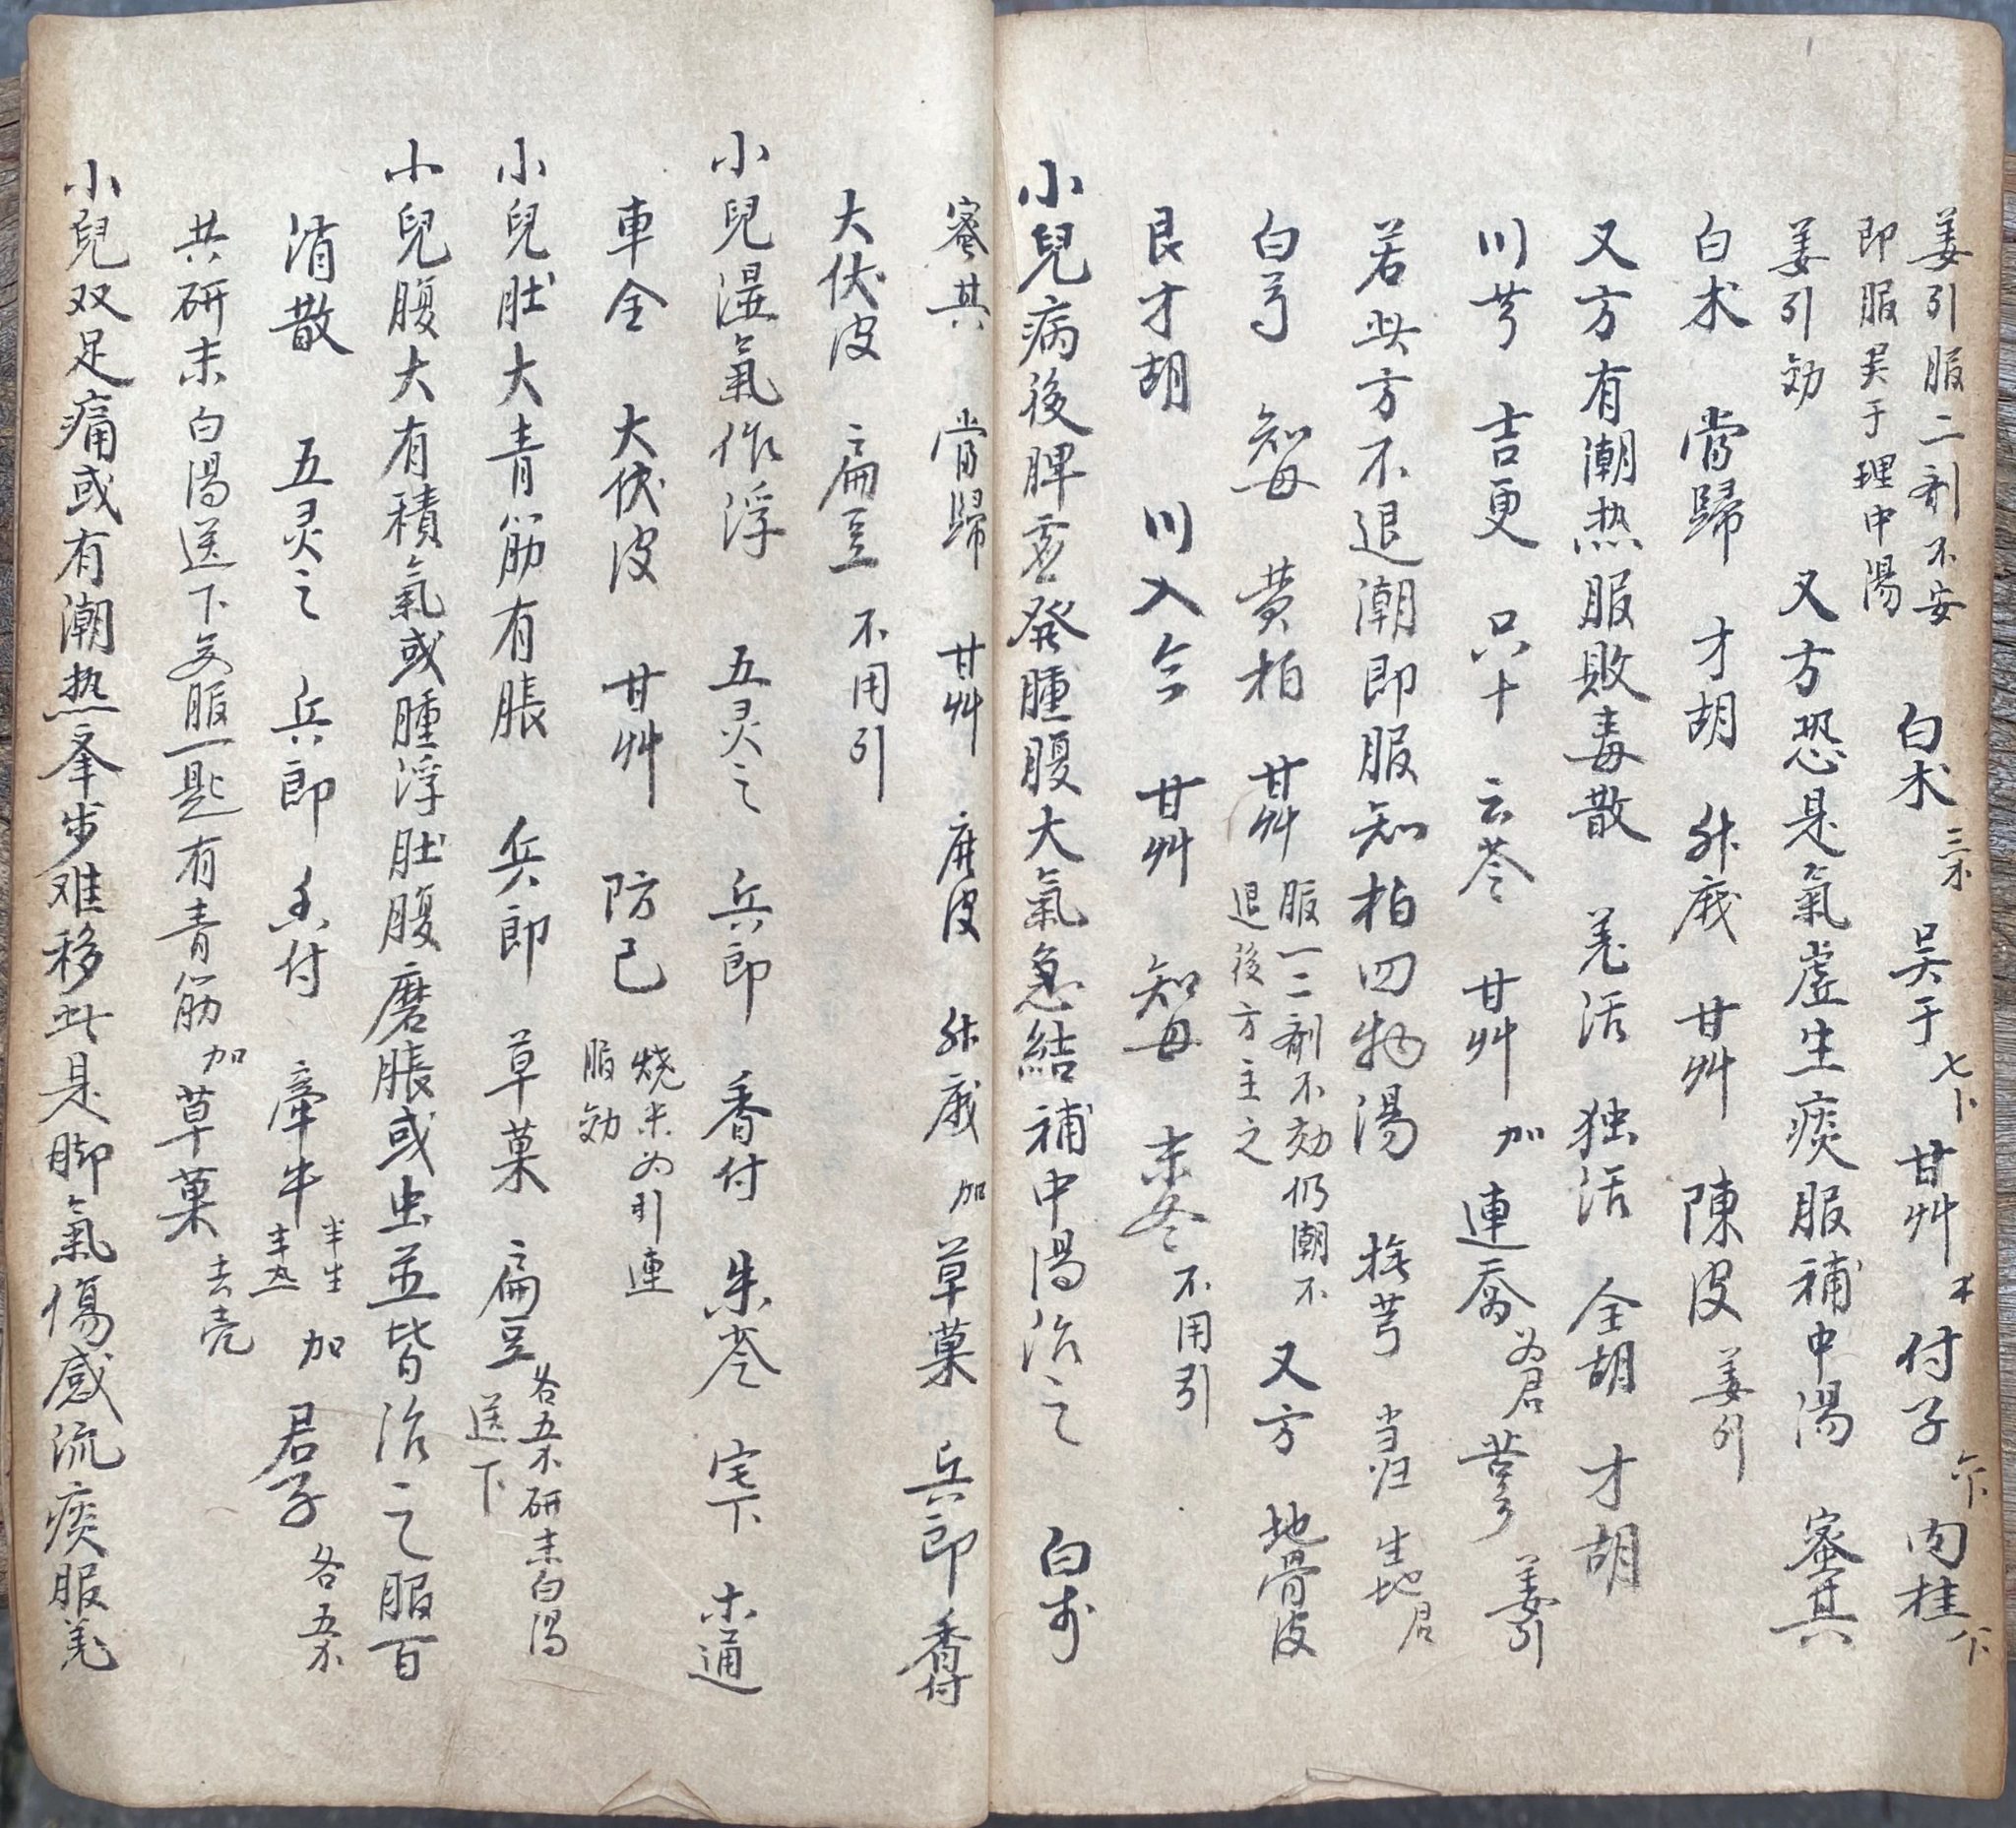 姜引服二剤不安
即服吴于理中湯
白术 吴于 甘艸 付子 肉桂
姜引効 又方恐是氣虛生痰服補中湯 蜜其
白术 當歸 才胡 升麻 甘艸 陳皮 姜引
又方有潮热服敗毒散 羌活 独活 全胡 才胡
川芎 吉更 只十 云苓 甘艸 加連喬為君 姜引
若此方不退潮即服知柏四物湯 撫芎 当归 生地君
白芍 知母 黄柏 甘艸 服一二剤不効仍潮不
退後方主之 又方 地骨皮
艮才胡 川入今 甘艸 知母 末冬 不用引
小兒病後脾虛發腫腹大氣急結補中湯治之 白朮
蜜其 當歸 甘艸 陳皮 升麻 加草菓 兵郎 香付
大伏皮 扁豆 不用引
小兒湿氣作浮 五灵之 兵郎 香付 朱苓 宅下 木通
車全 大伏皮 甘艸 防已 烧米为引連
服効
小兒肚大青筋有脹 兵郎 草菓 扁豆 各五木研末白湯
送下
小兒腹大有積氣或腫浮肚腹磨脹或虫並皆治之服百
消散 五灵之 兵郎 香付 牽牛 半生
半热 加君子 各五木
共研末白湯送下每服一匙有青筋加草菓去壳
小兒双足痛或有潮热举步难移此是脚氣傷感流痰服羌